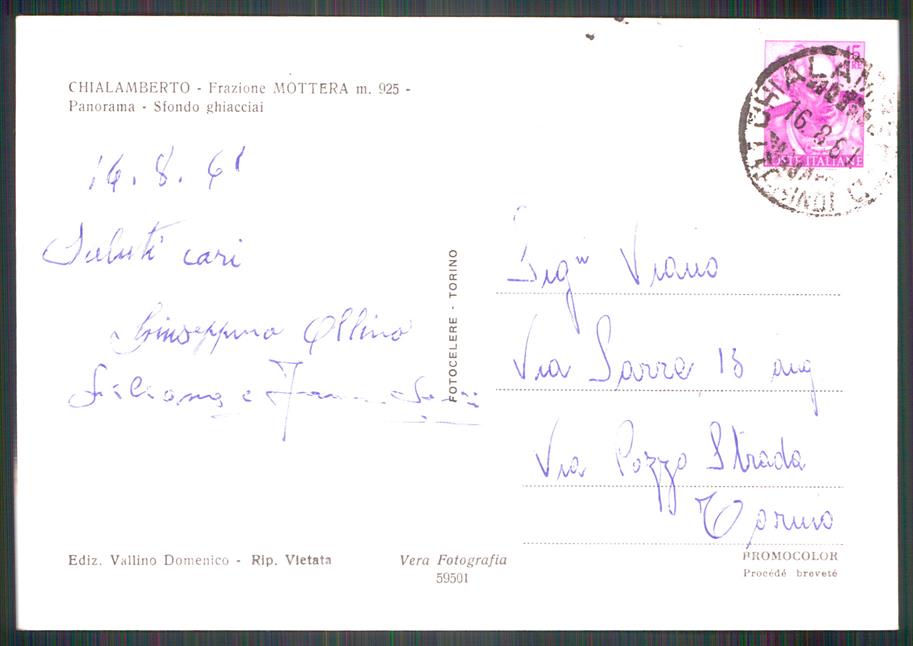 CHIALAMBERTO - Frazione MOTTERA m. 925 -
Panorama - Sfondo ghiacciai
16. 8. 61
Saluti cari
Giuseppina Ollino
Liliana e
FOTOCELERE - TORINO
15
POSTE ITALIANE
16.8.61
Sigri Viano
Via Sarre 13 ang
Via Pozzo Strada
Torino
Ediz. Vallino Domenico - Rip. Vietata
Vera Fotografia
59501
PROMOCOLOR
Procédé breveté